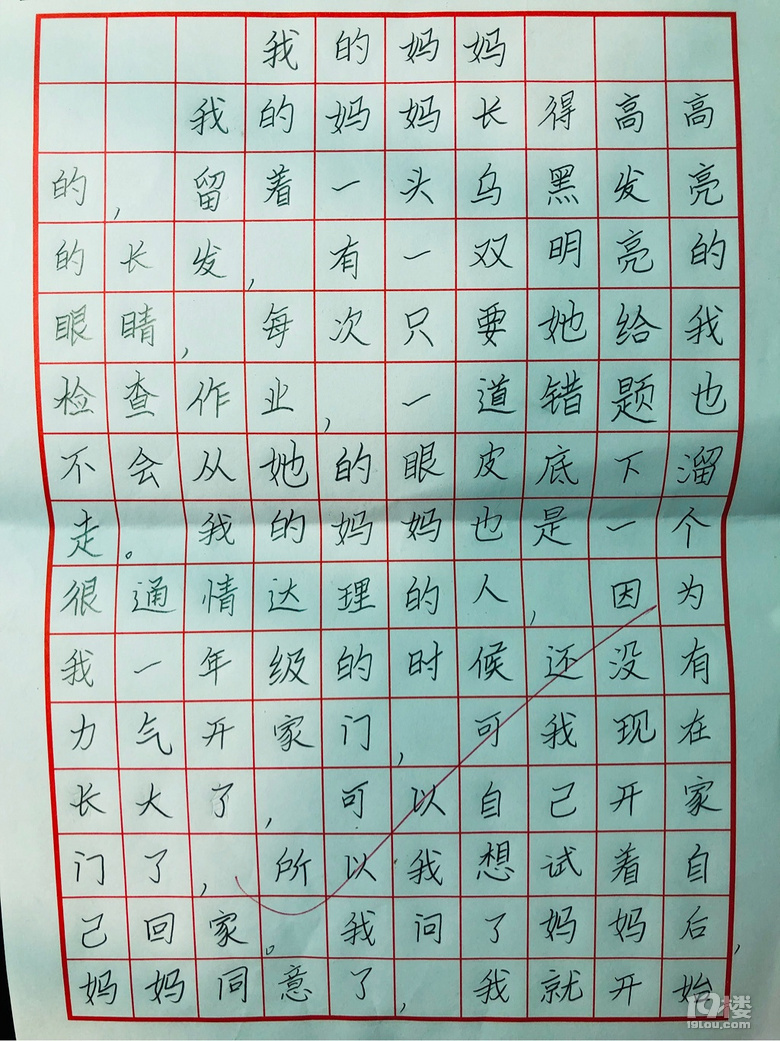 我的妈妈
我的妈妈长得高高
的，留着一头乌黑发亮
的长发，有一双明亮的
眼睛，每次只要她给我
检查作业，一道错题也
不会从她的眼皮底下溜
走。我的妈妈也是一个
很通情达理的人，因为
我一年级的时候还没有
力气开家门，可我现在
长大了，可以自己开家
门了，所以我想试着自
己回家。我问了妈妈后，
妈妈同意了，我就开始
19楼
19lou.com